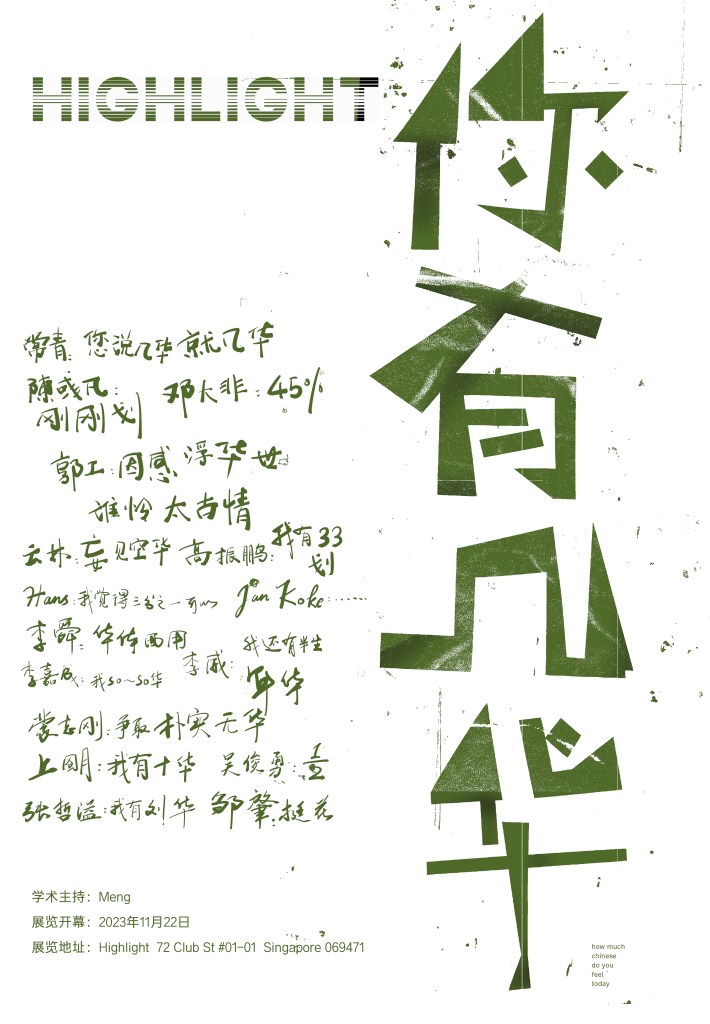 HIGHLIGHT
你有几华
常青: 您说几华就几华
陳彧凡:
刚刚划
邓大非: 45%
郭工: 因感浮华世
谁怜太古情
云林: 妄见空华
高振鹏: 我有33
划
Hans: 我觉得三分之一可以
Jan Koke: ......
李舜: 华体西用
李威: 我还有半生
年华
我so~so华
裳志刚: 争取朴实无华
上围月: 我有十华
吴俊勇: 1
张哲溢: 我有刘华
邹肇挺花
学术主持：Meng
展览开幕：2023年11月22日
展览地址：Highlight 72 Club St #01-01 Singapore 069471
how much
chinese
do you
feel
today